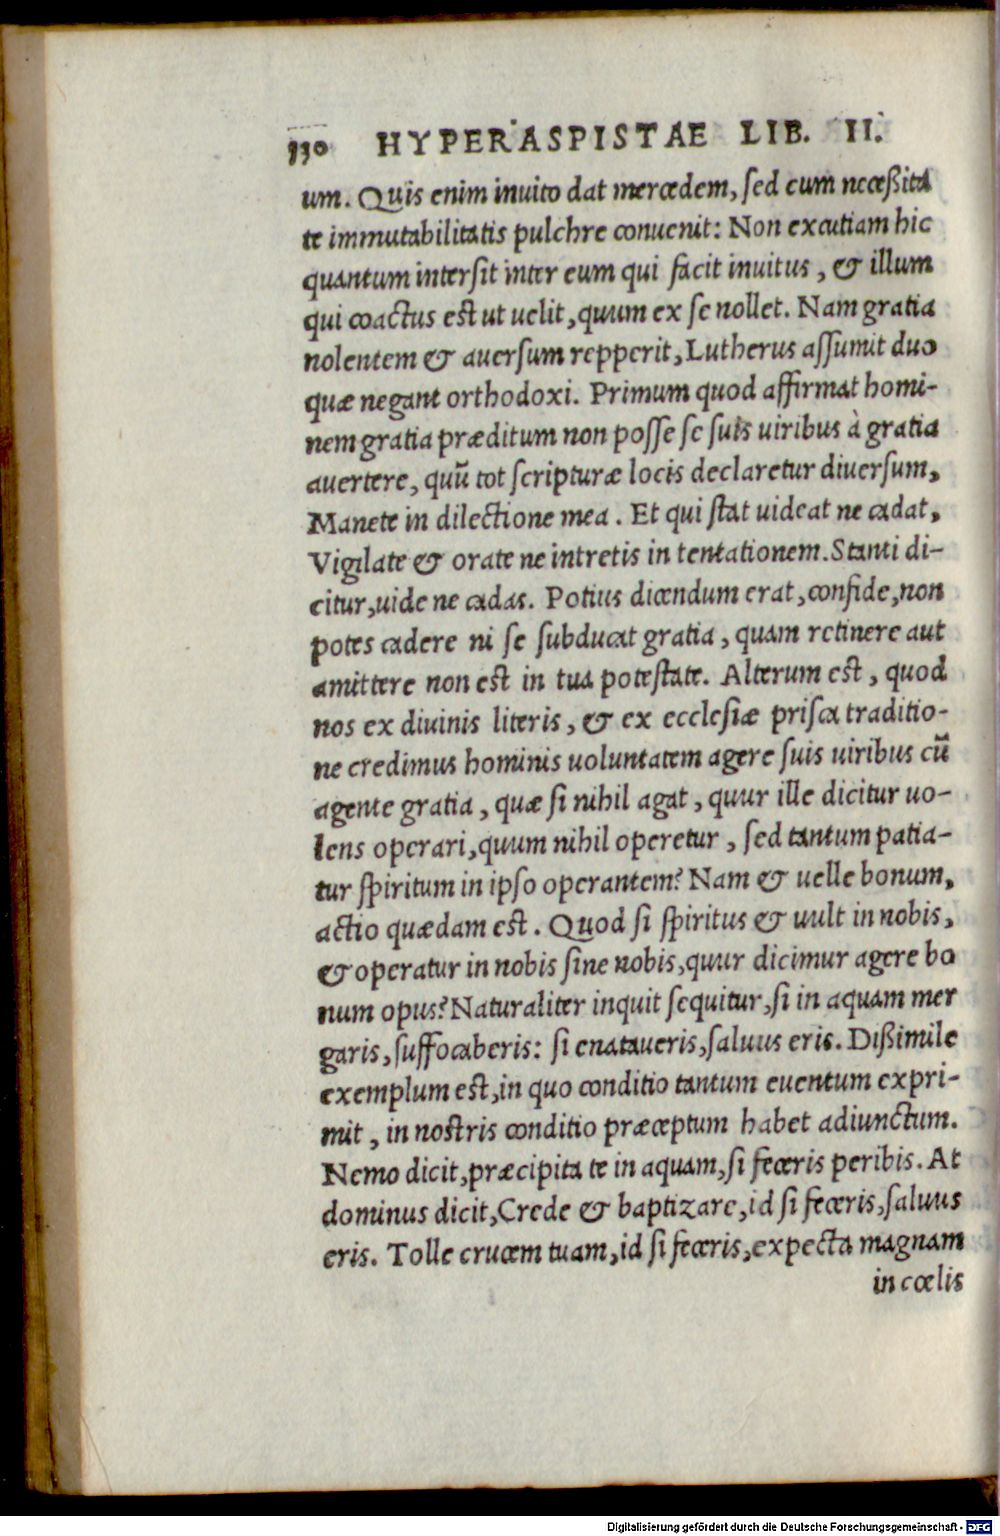 530 HYPERASPISTAE LIB. II.
um. Quis enim inuito dat mercedem, sed cum neceßita
te immutabilitatis pulchre conuenit: Non excutiam hic
quantum intersit inter eum qui facit inuitus, & illum
qui coactus est ut uelit, quum ex se nollet. Nam gratia
nolentem & auersum repperit, Lutherus assumit duo
quæ negant orthodoxi. Primum quod affirmat homi-
nem gratia præditum non posse se suis uiribus à gratia
auertere, quū tot scripturæ locis declaretur diuersum,
Manete in dilectione mea. Et qui stat uideat ne cadat,
Vigilate & orate ne intretis in tentationem. Stanti di-
citur, uide ne cadas. Potius dicendum erat, confide, non
potes cadere ni se subducat gratia, quam retinere aut
amittere non est in tua potestate. Alterum est, quod
nos ex diuinis literis, & ex ecclesiæ prisca traditio-
ne credimus hominis uoluntatem agere suis uiribus cū
agente gratia, quæ si nihil agat, quur ille dicitur uo-
lens operari, quum nihil operetur, sed tantum patia-
tur spiritum in ipso operantem? Nam & uelle bonum,
actio quædam est. Quod si spiritus & uult in nobis,
& operatur in nobis sine nobis, quur dicimur agere bo
num opus? Naturaliter inquit sequitur, si in aquam mer
garis, suffocaberis: si enataueris, saluus eris. Dißimile
exemplum est, in quo conditio tantum euentum expri-
mit, in nostris conditio præceptum habet adiunctum.
Nemo dicit, præcipita te in aquam, si feceris peribis. At
dominus dicit, Crede & baptizare, id si feceris, saluus
eris. Tolle crucem tuam, id si feceris, expecta magnam
in cœlis
Digitalisierung gefördert durch die Deutsche Forschungsgemeinschaft - DFG